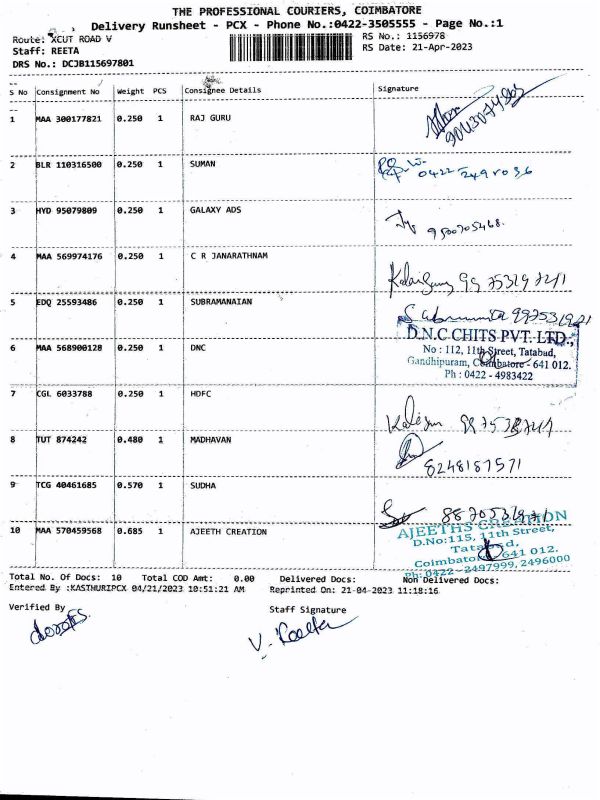 THE PROFESSIONAL COURIERS, COIMBATORE
Delivery Runsheet - PCX - Phone No.:0422-3505555 - Page No.:1
Route: XCUT ROAD V
RS No.: 1156978
Staff: REETA
RS Date: 21-Apr-2023
DRS No.: DCJB115697801
S No Consignment No Weight PCS Consignee Details Signature
1 MAA 300177821 0.250 1 RAJ GURU
2 BLR 110316500 0.250 1 SUMAN
3 HYD 95079809 0.250 1 GALAXY ADS
9500705468.
4 MAA 569974176 0.250 1 C R JANARATHNAM
5 EDQ 25593486 0.250 1 SUBRAMANAIAN
D.N.C CHITS PVT. LTD.,
6 MAA 568900128 0.250 1 DNC
No : 112, 11th Street, Tatabad,
Gandhipuram, Coimbatore - 641 012.
Ph : 0422 - 4983422
7 CGL 6033788 0.250 1 HDFC
8 TUT 874242 0.480 1 MADHAVAN
8248187571
9 TCG 40461685 0.570 1 SUDHA
10 MAA 570459568 0.685 1 AJEETH CREATION
AJEETHS CREATION
D.No:115, 11th Street,
Tatabad,
Coimbatore 641 012.
Ph: 0422 - 2497999, 2496000
Total No. Of Docs: 10 Total COD Amt: 0.00 Delivered Docs: Non Delivered Docs:
Entered By :KASTHURIPCX 04/21/2023 10:51:21 AM Reprinted On: 21-04-2023 11:18:16
Verified By Staff Signature
V. Reeta